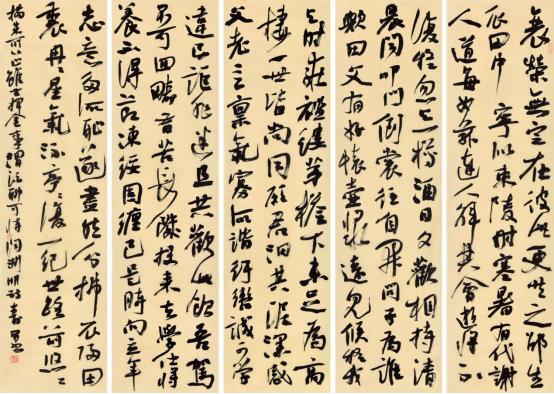 衰榮無定在彼此更共之邵生
瓜田中寧似東陵時寒暑有代謝
人道每如茲達人解其會逝將不
復疑忽與一樽酒日夕歡相持清
晨聞叩門倒裳往自開問子為誰
歟田父有好懷壺漿遠見候疑我
與時乖襤縷茅檐下未足為高
棲一世皆尚同願君汩其泥深感
父老言稟氣寡所諧紆轡誠可學
違己詎非迷且共歡此飲吾駕
不可回疇昔苦長飢投耒去學仕將
養不得節凍餒固纏己是時向立年
志意多所恥遂盡然分拂衣歸田
里冉々星氣流亭々復一紀世路悠々
楊朱所以止雖無揮金事濁酒聊可恃陶淵明詩